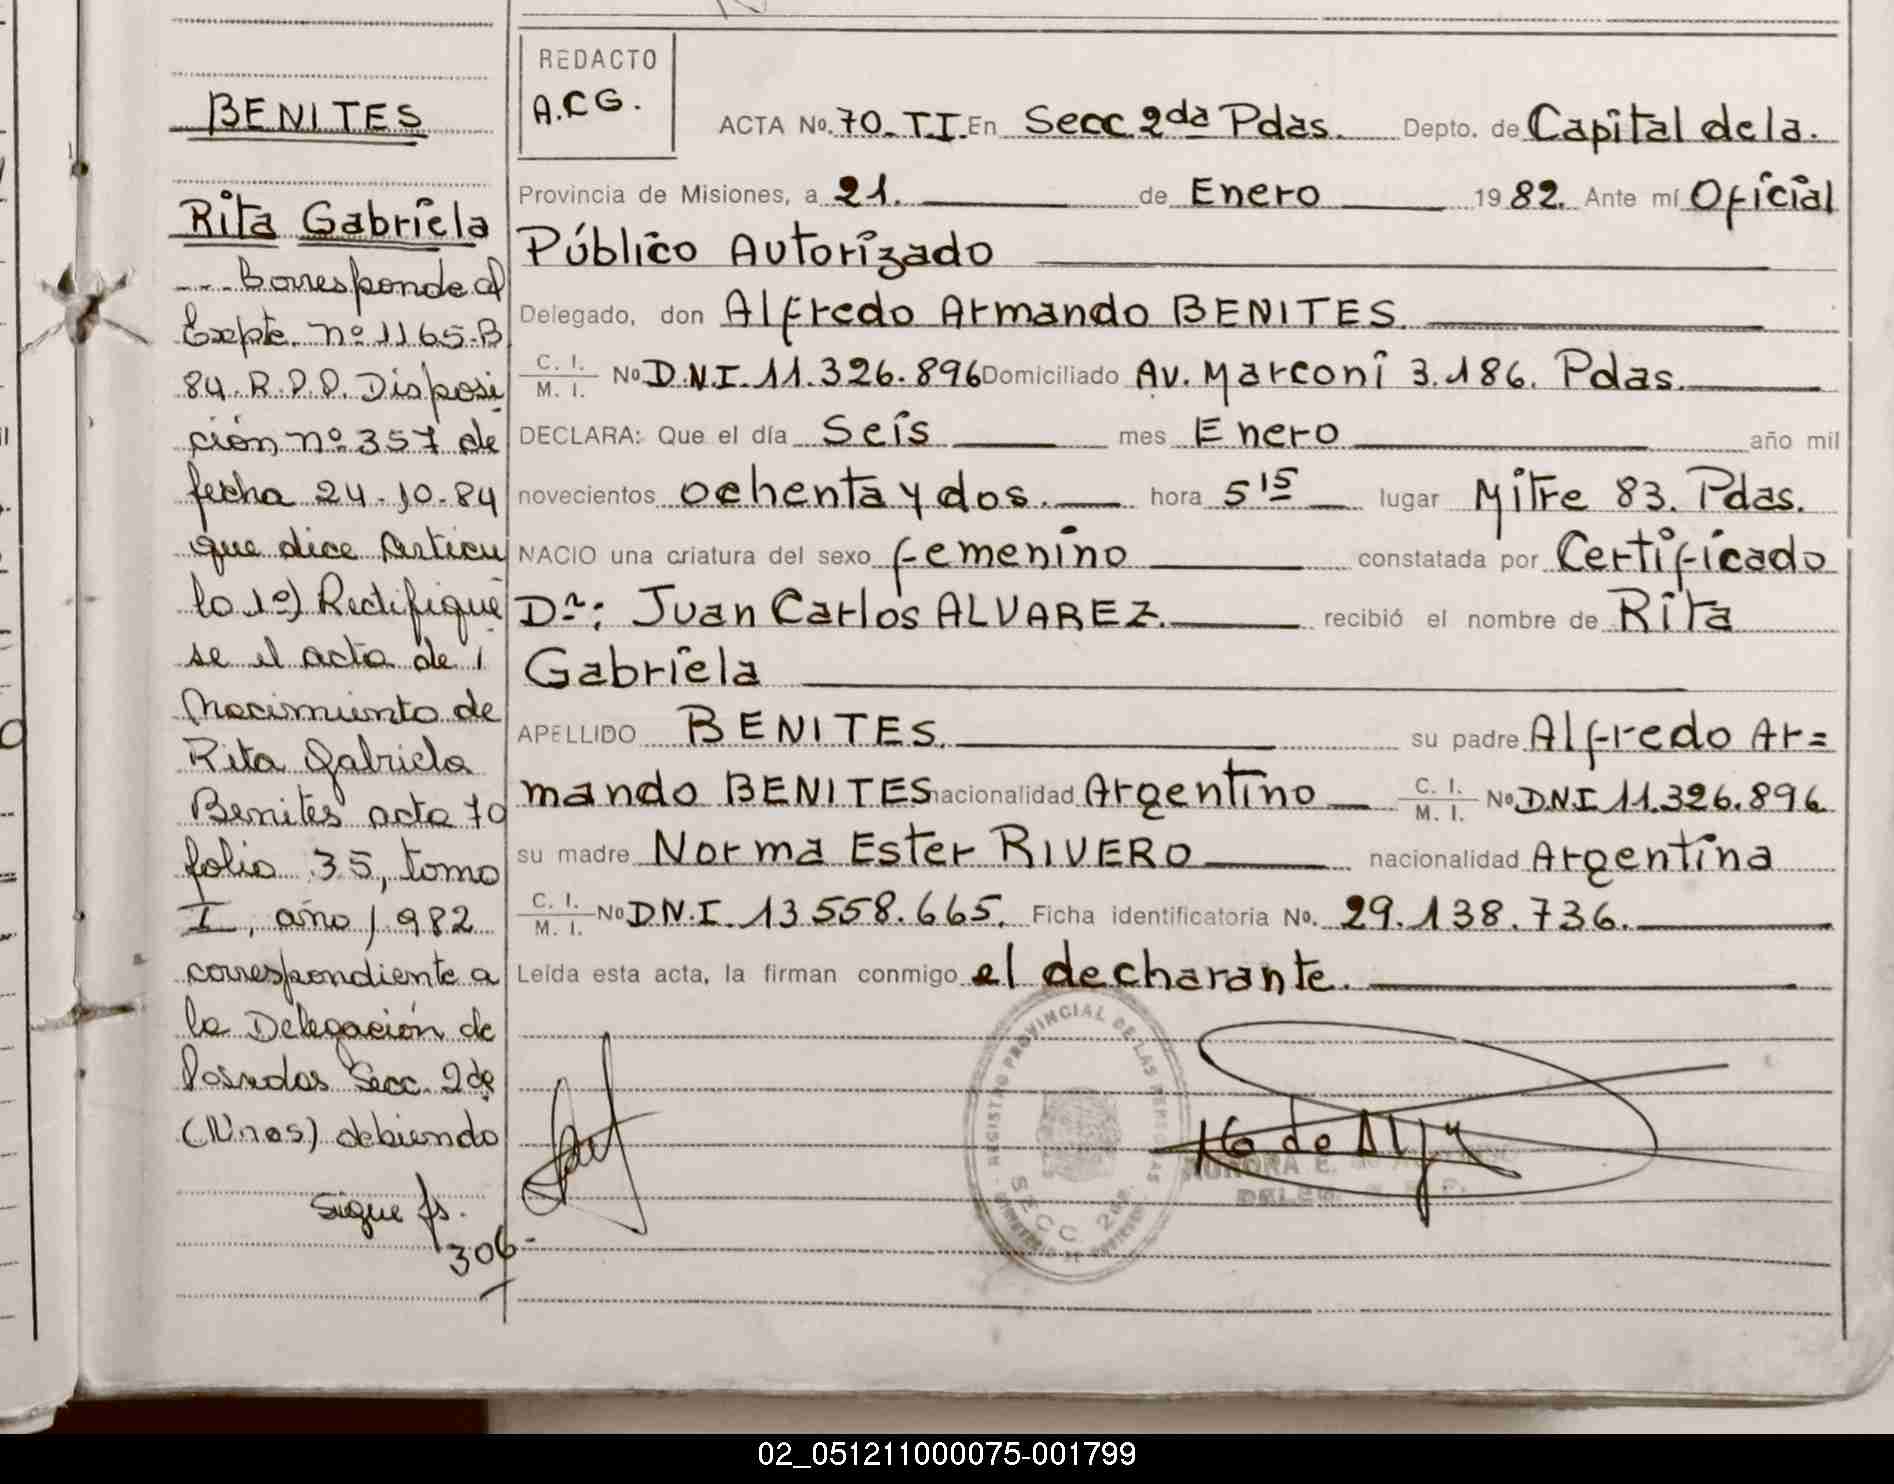 BENITES
Rita Gabriela
--- Corresponde al
Expte. nº 1165-B
84. R.P.P. Disposi
ción nº 357 de
fecha 24-10-84
que dice Articu
lo 1º) Rectifique
se el acta de
Nacimiento de
Rita Gabriela
Benites acta 70
folio 35, tomo
I, año 1982
correspondiente a
la Delegación de
Posadas Secc. 2da
debiendo
Sigue fs.
306-
REDACTO
A.C.G.
ACTA No. 70. TI. En Secc 2da Pdas. Depto. de Capital de la.
Provincia de Misiones, a 21. de Enero 1982. Ante mí Oficial
Público Autorizado
Delegado, don Alfredo Armando BENITES.
C. I. / M. I. No D.N.I. 11.326.896 Domiciliado Av. Marconi 3.186. Pdas.
DECLARA: Que el día Seis mes Enero año mil
novecientos ochenta y dos. hora 5 15 lugar Mitre 83. Pdas.
NACIO una criatura del sexo femenino constatada por Certificado
Dr: Juan Carlos ALVAREZ. recibió el nombre de Rita
Gabriela
APELLIDO BENITES. su padre Alfredo Ar=
mando BENITES nacionalidad Argentino C. I. / M. I. No DNI 11.326.896
su madre Norma Ester RIVERO nacionalidad Argentina
C. I. / M. I. No D.N.I. 13558.665. Ficha identificatoria No. 29.138.736.
Leída esta acta, la firman conmigo el decharante.
REGISTRO PROVINCIAL DE LAS PERSONAS
SECC 2da
AURORA E.
DELEG.
02_051211000075-001799